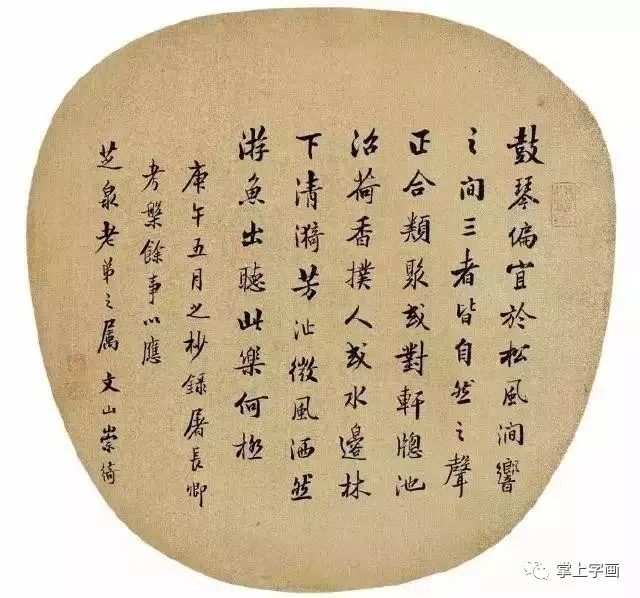 鼓琴偏宜於松風澗響
之間三者皆自然之聲
正合類聚或對軒牕池
沼荷香撲人或水邊林
下清漪芳沚微風洒然
游魚出聽此樂何極
庚午五月之杪録屠長卿
考槃餘事以應
芝泉老弟之屬 文山崇綺
掌上字画